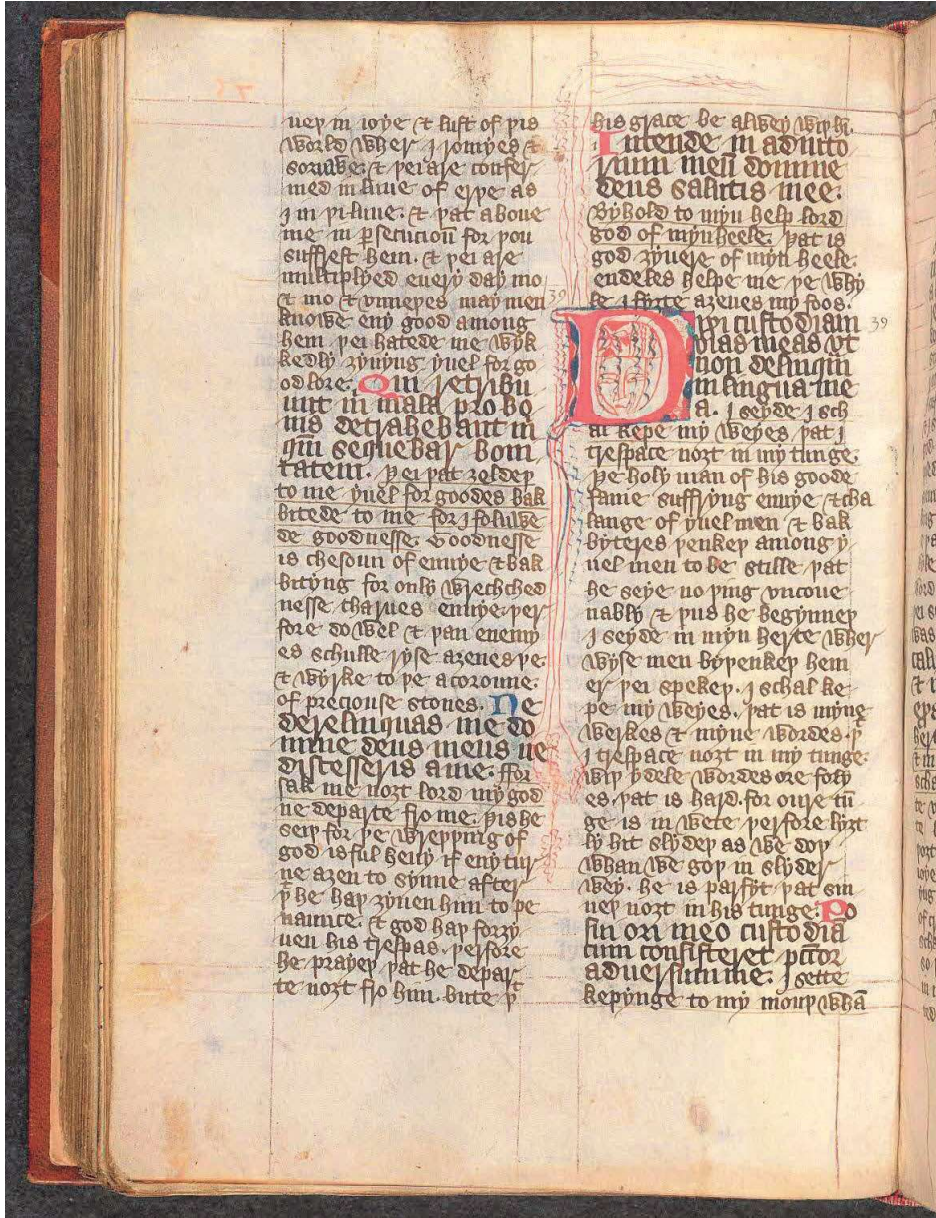 ueþ in ioye & lust of þis
world wher I ioinyes &
sorwwe. & þei are confer
med in luue of erþe as
I in þi luue. & þat aboue
me in ꝑsecucioū for þou
suffrest hem. & þei are
multiplyed euery day mo
& mo & vnneþes may men
knowe eny good among
hem þei hatede me wyk
kedly ȝyuyng yuel for go
od lore. Qui retribu
unt in mala pro bo
nis detrahebant m
qm̄ sequebar boni
tatem. Þei þat ȝeldeþ
to me yuel for goodes bak
bitede to me for I folwwe
de goodnesse. Goodnesse
is chesoun of enuye & bak
bityng for only wrecched
nesse charues enuye. þer
fore do wel & þan enemy
es schulle ryse aȝenes þe.
& wyrke to þe a coroune.
of preciouse stones. Ne
derelinquas me do
mine deus meus ne
discesseris a me. ffor
sak me noȝt lord my god
ne departe fro me. þis he
seiþ for þe wreþþing of
god is ful heuy if eny tur
ne aȝen to synne after
þ̄ he haþ ȝyuen him to pe
naunce. & god haþ forȝy
uen his trespas. þerfore
he prayeþ þat he depar
te noȝt fro him. bute þᵗ
his grace be alwey wiþ hī.
Intende in adiuto
rium meū domine
deus salutis mee.
Byhold to myn help lord
god of myn heele. þat is
god ȝyuere of myn heele.
endeles helpe me þe why
le I fyȝte aȝenes my foos.
39
Dixi custodiam
39
vias meas vt
non delinquā
in lingua me
a. I seyde I sch
al kepe my weyes þat I
trespace noȝt in my tunge.
Þe holy man of his goode
fame suffryng enuye & cha
lange of yuel men & bak
byteres þenkeþ among y
uel men to be stille þat
he seye no þing vncoue
nably & þus he begynneþ
I seyde in myn herte wher
wyse men byþenkeþ hem
er þei spekeþ. I schal ke
pe my weyes. þat is myne
werkes & myne wordes. þᵗ
I trespace noȝt in my tunge.
wiþ ydele wordes ore foly
es. þat is hard. for oure tū
ge is in wete þerfore lyȝt
ly hit slydeþ as we doþ
whan we goþ in slyder
wey. he is parfyt þat sin
neþ noȝt in his tunge. Po
sui ori meo custodiā
cum consisteret pctor
aduersum me. I sette
kepynge to my mouþ whā